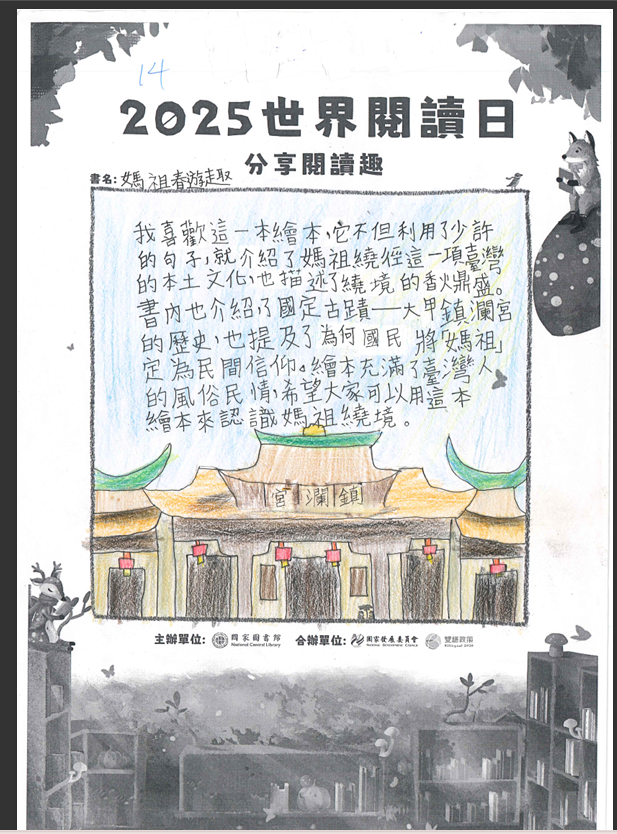 14
2025世界閱讀日
分享閱讀趣
書名:媽祖春游趣
我喜歡這一本繪本,它不但利用了少許
的句子,就介紹了媽祖繞徑這一項臺灣
的本土文化,也描述了繞境的香火鼎盛。
書內也介紹了國定古蹟──大甲鎮瀾宮
的歷史,也提及了為何國民將「媽祖」
定為民間信仰。繪本充滿了臺灣人
的風俗民情,希望大家可以用這本
繪本來認識媽祖繞境。
宮瀾鎮
主辦單位: 國家圖書館 National Central Library 合辦單位: 國家發展委員會 National Development Council 雙語政策 Bilingual 2030